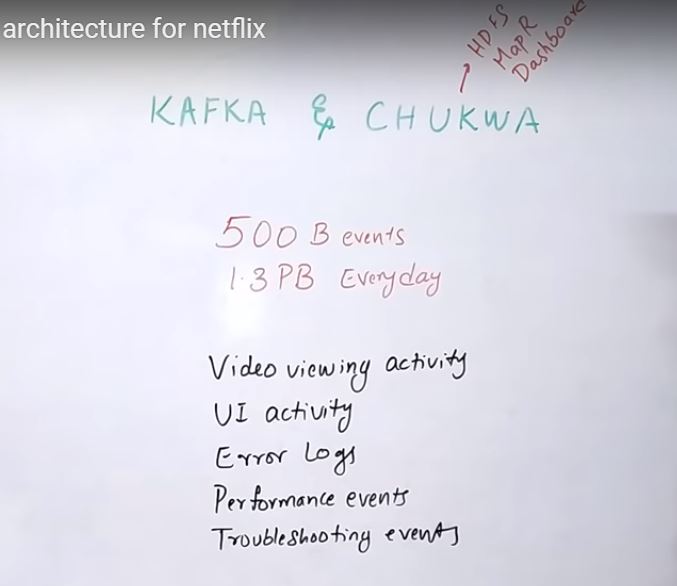 architecture for netflix
HDFS
MapR
Dashboard
KAFKA & CHUKWA
500 B events
1.3 PB Everyday
Video viewing activity
UI activity
Error Logs
Performance events
Troubleshooting events